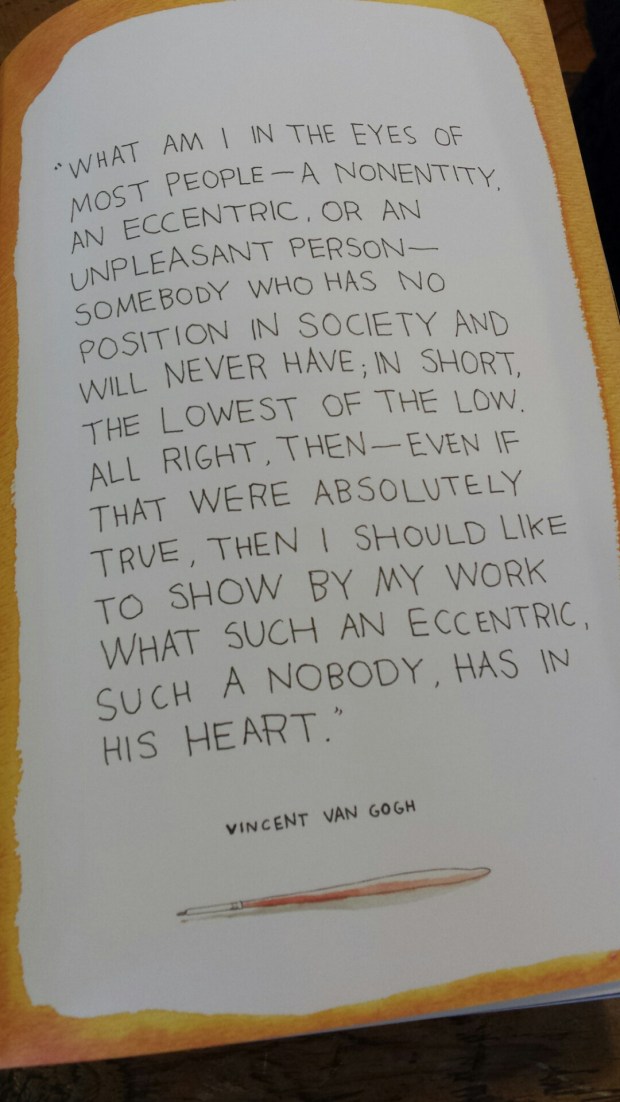 "WHAT AM I IN THE EYES OF
MOST PEOPLE—A NONENTITY,
AN ECCENTRIC, OR AN
UNPLEASANT PERSON—
SOMEBODY WHO HAS NO
POSITION IN SOCIETY AND
WILL NEVER HAVE; IN SHORT,
THE LOWEST OF THE LOW.
ALL RIGHT, THEN—EVEN IF
THAT WERE ABSOLUTELY
TRUE, THEN I SHOULD LIKE
TO SHOW BY MY WORK
WHAT SUCH AN ECCENTRIC,
SUCH A NOBODY, HAS IN
HIS HEART."
VINCENT VAN GOGH